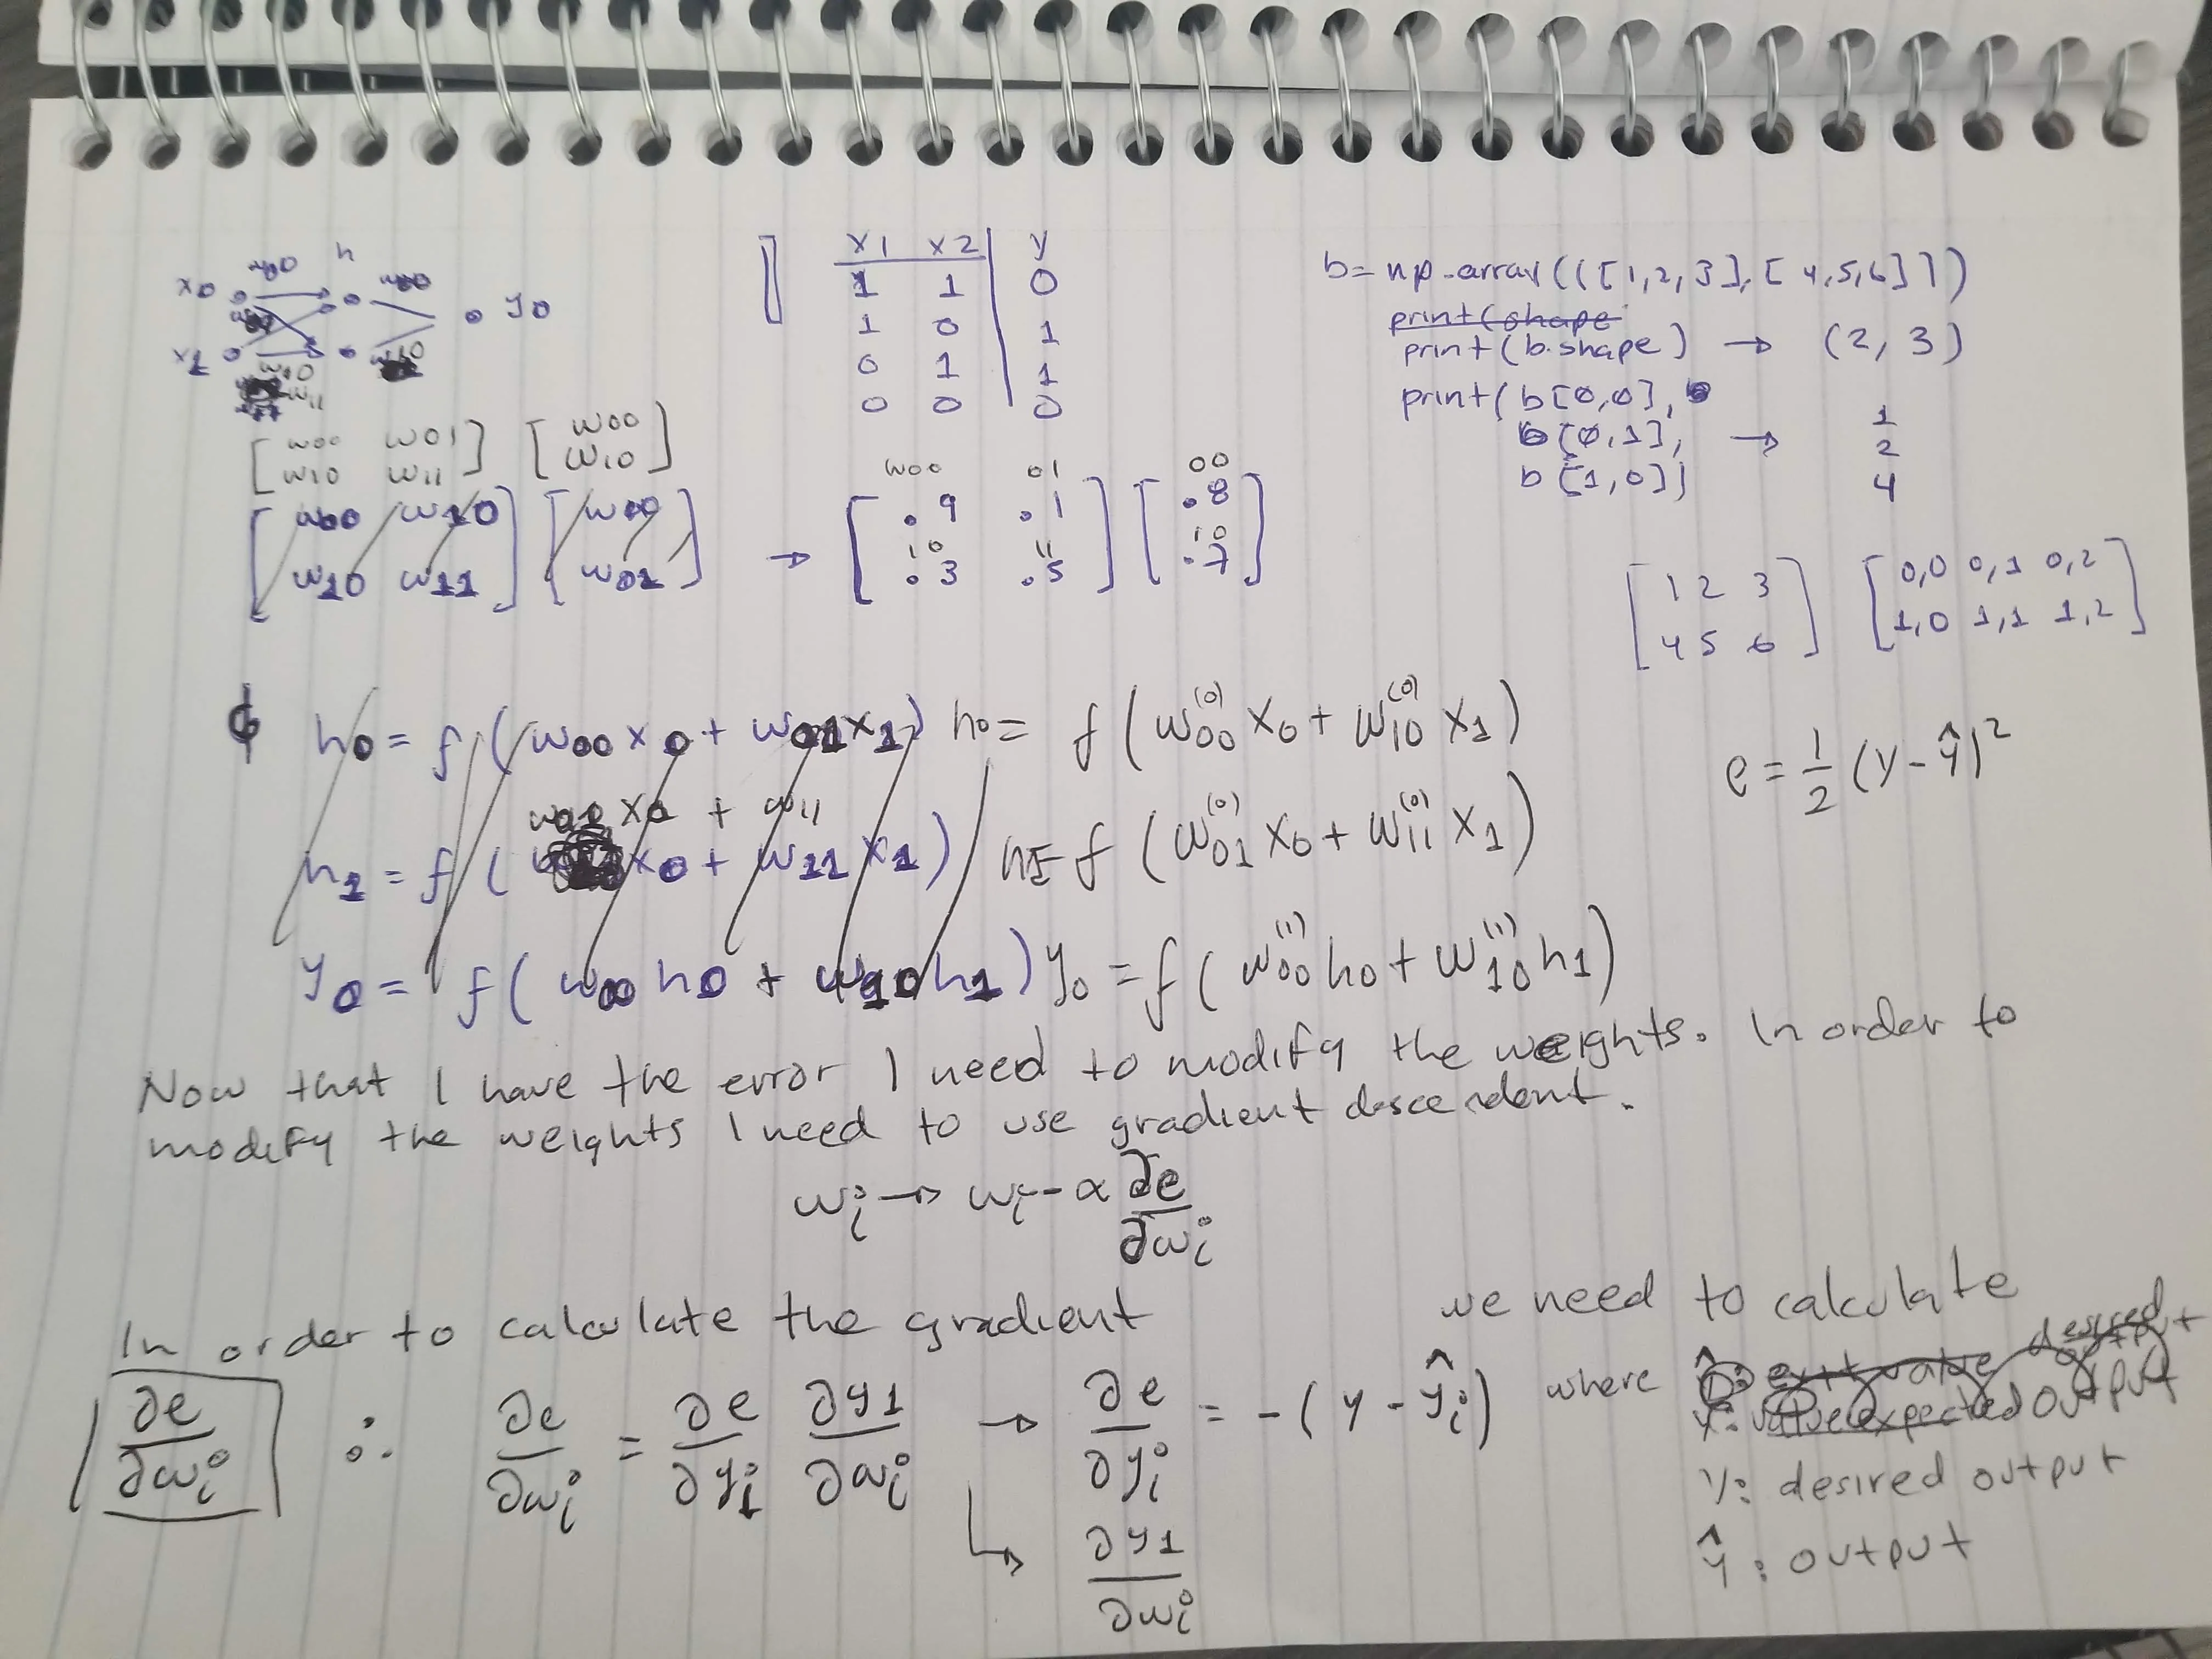 x0 w00 h w00 y0
x1 w10 w11 w10
[w00 w01 w10 w11] [w00 w10]
[w00 w10 w10 w11] [w00 w01] → [.9 .1 .3 .5] [.8 .7]
w00 01 10 11 00 10
x1 x2 y
1 1 0
1 0 1
0 1 1
0 0 0
b = np.array(([1,2,3],[4,5,6]])
print(shape
print(b.shape) → (2, 3)
print(b[0,0], 1
b[0,1], → 2
b[1,0]) 4
[1 2 3 4 5 6] [0,0 0,1 0,2 1,0 1,1 1,2]
h0 = f(w00 x0 + w01 x1) h0 = f(w00^(0) x0 + w10^(0) x1)
e = 1/2 (y - ŷ)²
x0 + w11
h1 = f( x0 + w11 x1) h1 = f(w01^(0) x0 + w11^(0) x1)
y0 = f(w00 h0 + w10 h1) y0 = f(w00^(1) h0 + w10^(1) h1)
Now that I have the error I need to modify the weights. In order to
modify the weights I need to use gradient descendent.
wi → wi - α ∂e/∂wi
In order to calculate the gradient we need to calculate
∂e/∂wi ∴ ∂e/∂wi = ∂e/∂yi ∂y1/∂wi → ∂e/∂yi = -(y - ŷi) where
desired output
y: value expected output
y: desired output
∂y1/∂wi
ŷ: output